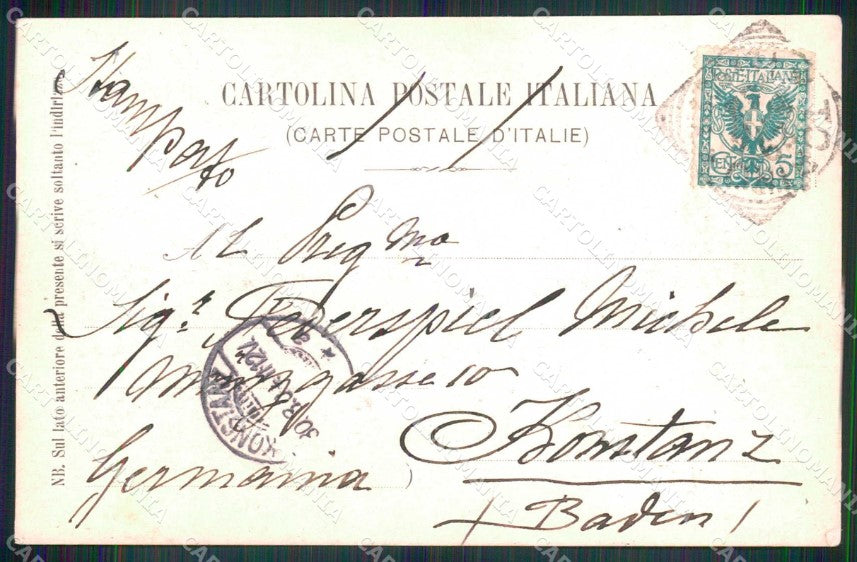 Stampato
CARTOLINA POSTALE ITALIANA
(CARTE POSTALE D'ITALIE)
POSTE ITALIANE
CENT. 5
Al Preg mo
Sig.r Federspiel Michele
10
Konstanz
Germania
(Baden)
KONSTANZ
NB. Sul lato anteriore della presente si scrive soltanto l'indirizzo
CARTOLINOMANIA